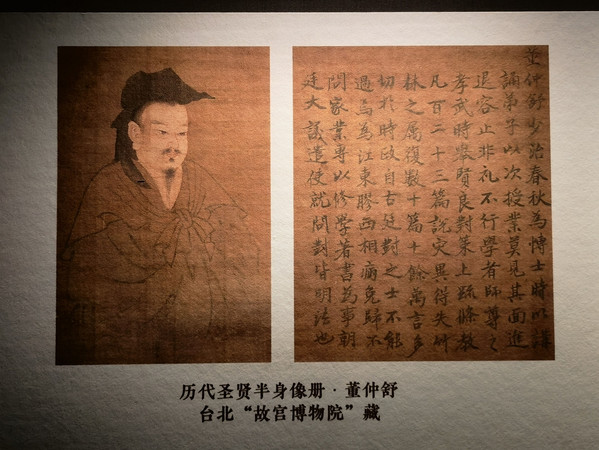 董仲舒少治春秋為博士時以講
誦弟子以次授業莫見其面進
退容止非礼不行學者師尊之
孝武時舉賢良對策上疏條教
凡百二十三篇說灾異得失竹
林之属復數十篇十餘萬言多
切於時政自古廷對之士不能
過焉為江東膠西相病免歸不
問家業專以修學著書為事朝
廷大議遣使就問對皆明法也
历代圣贤半身像册·董仲舒
台北“故宫博物院”藏